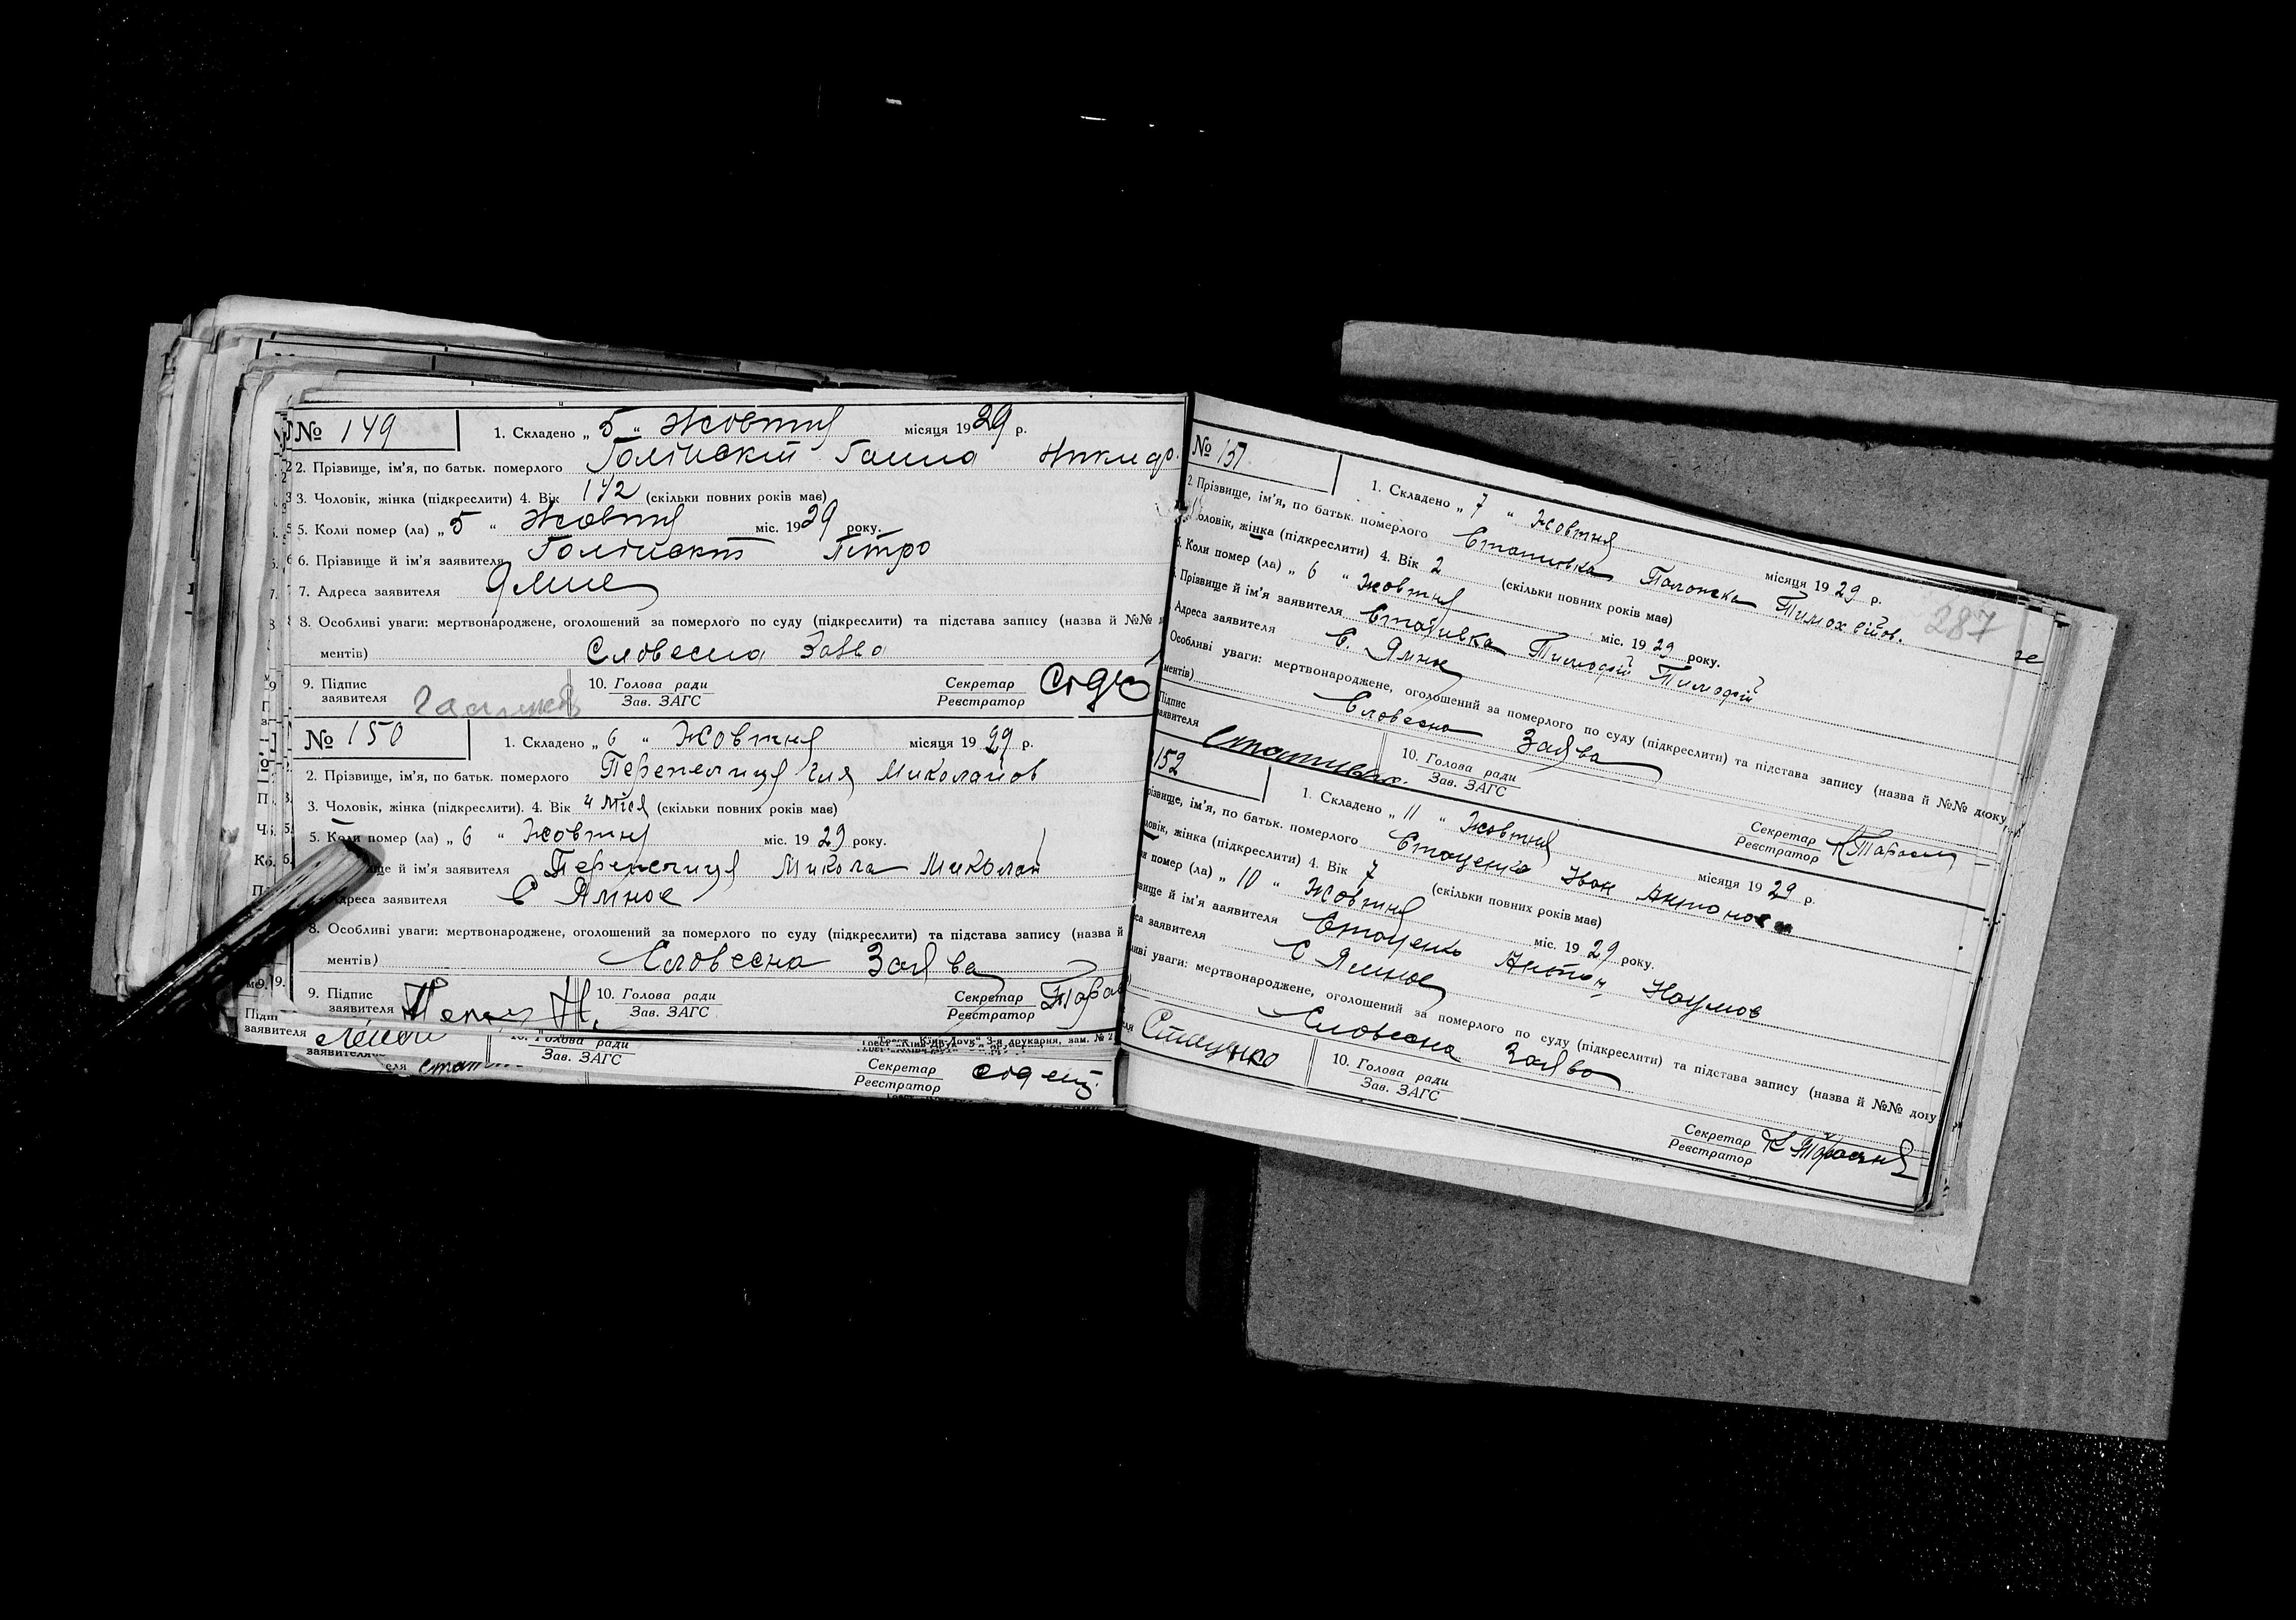 № 149 1. Складено „ 5 “ Жовтня місяця 1929 р.
2. Прізвище, ім'я, по батьк. померлого Ганна
3. Чоловік, жінка (підкреслити) 4. Вік 1 1/2 (скільки повних років має)
5. Коли помер (ла) „ 5 “ Жовтня міс. 1929 року.
6. Прізвище й ім'я заявителя Петро
7. Адреса заявителя
8. Особливі уваги: мертвонароджене, оголошений за померлого по суду (підкреслити) та підстава запису (назва й №№
ментів) Словесна
9. Підпис заявителя 10. Голова ради Зав. ЗАГС Секретар Реєстратор
№ 150 1. Складено „ 6 “ Жовтня місяця 1929 р.
2. Прізвище, ім'я, по батьк. померлого Перепелиця Іля Миколайов
3. Чоловік, жінка (підкреслити). 4. Вік 4 міся (скільки повних років має)
5. Коли помер (ла) „ 6 “ Жовтня міс. 1929 року.
ще й ім'я заявителя Перепелиця Микола Миколай
Адреса заявителя С Ямное
8. Особливі уваги: мертвонароджене, оголошений за померлого по суду (підкреслити) та підстава запису (назва й
ментів) Словесна Заява
9. Підпис заявителя 10. Голова ради Зав. ЗАГС Секретар Реєстратор
заявителя Голова ради Зав. ЗАГС
Секретар Реєстратор
№ 151 1. Складено „ 7 “ Жовтня місяця 1929 р.
2 Прізвище, ім'я, по батьк. померлого Стативка Тимохвійов.
287
оловік, жінка (підкреслити) 4. Вік 2 (скільки повних років має)
Коли помер (ла) „ 6 “ Жовтня міс. 1929 року.
Прізвище й ім'я заявителя Стативка Тимофій Тимофій
Адреса заявителя С. Ямное
Особливі уваги: мертвонароджене, оголошений за померлого по суду (підкреслити) та підстава запису (назва й №№ доку
ментів) Словесна Заява
Підпис заявителя 10. Голова ради Зав. ЗАГС Секретар Реєстратор
152 1. Складено „ 11 “ Жовтня місяця 1929 р.
різвище, ім'я, по батьк. померлого Стаценко Іван
ловік, жінка (підкреслити) 4. Вік 7 (скільки повних років має)
помер (ла) „ 10 “ Жовтня міс. 1929 року.
вище й ім'я заявителя Стаценко Антон Наумов
са заявителя С Ямное
ливі уваги: мертвонароджене, оголошений за померлого по суду (підкреслити) та підстава запису (назва й №№ доку
Словесна Заява
Стаценко 10. Голова ради Зав. ЗАГС Секретар Реєстратор